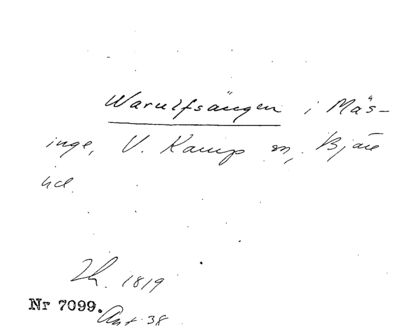 Warulfsängen i Mäs-
inge, V. Karup sn, Bjäre
hd.
Th. 1819
Nr 7099.
Ant. 38